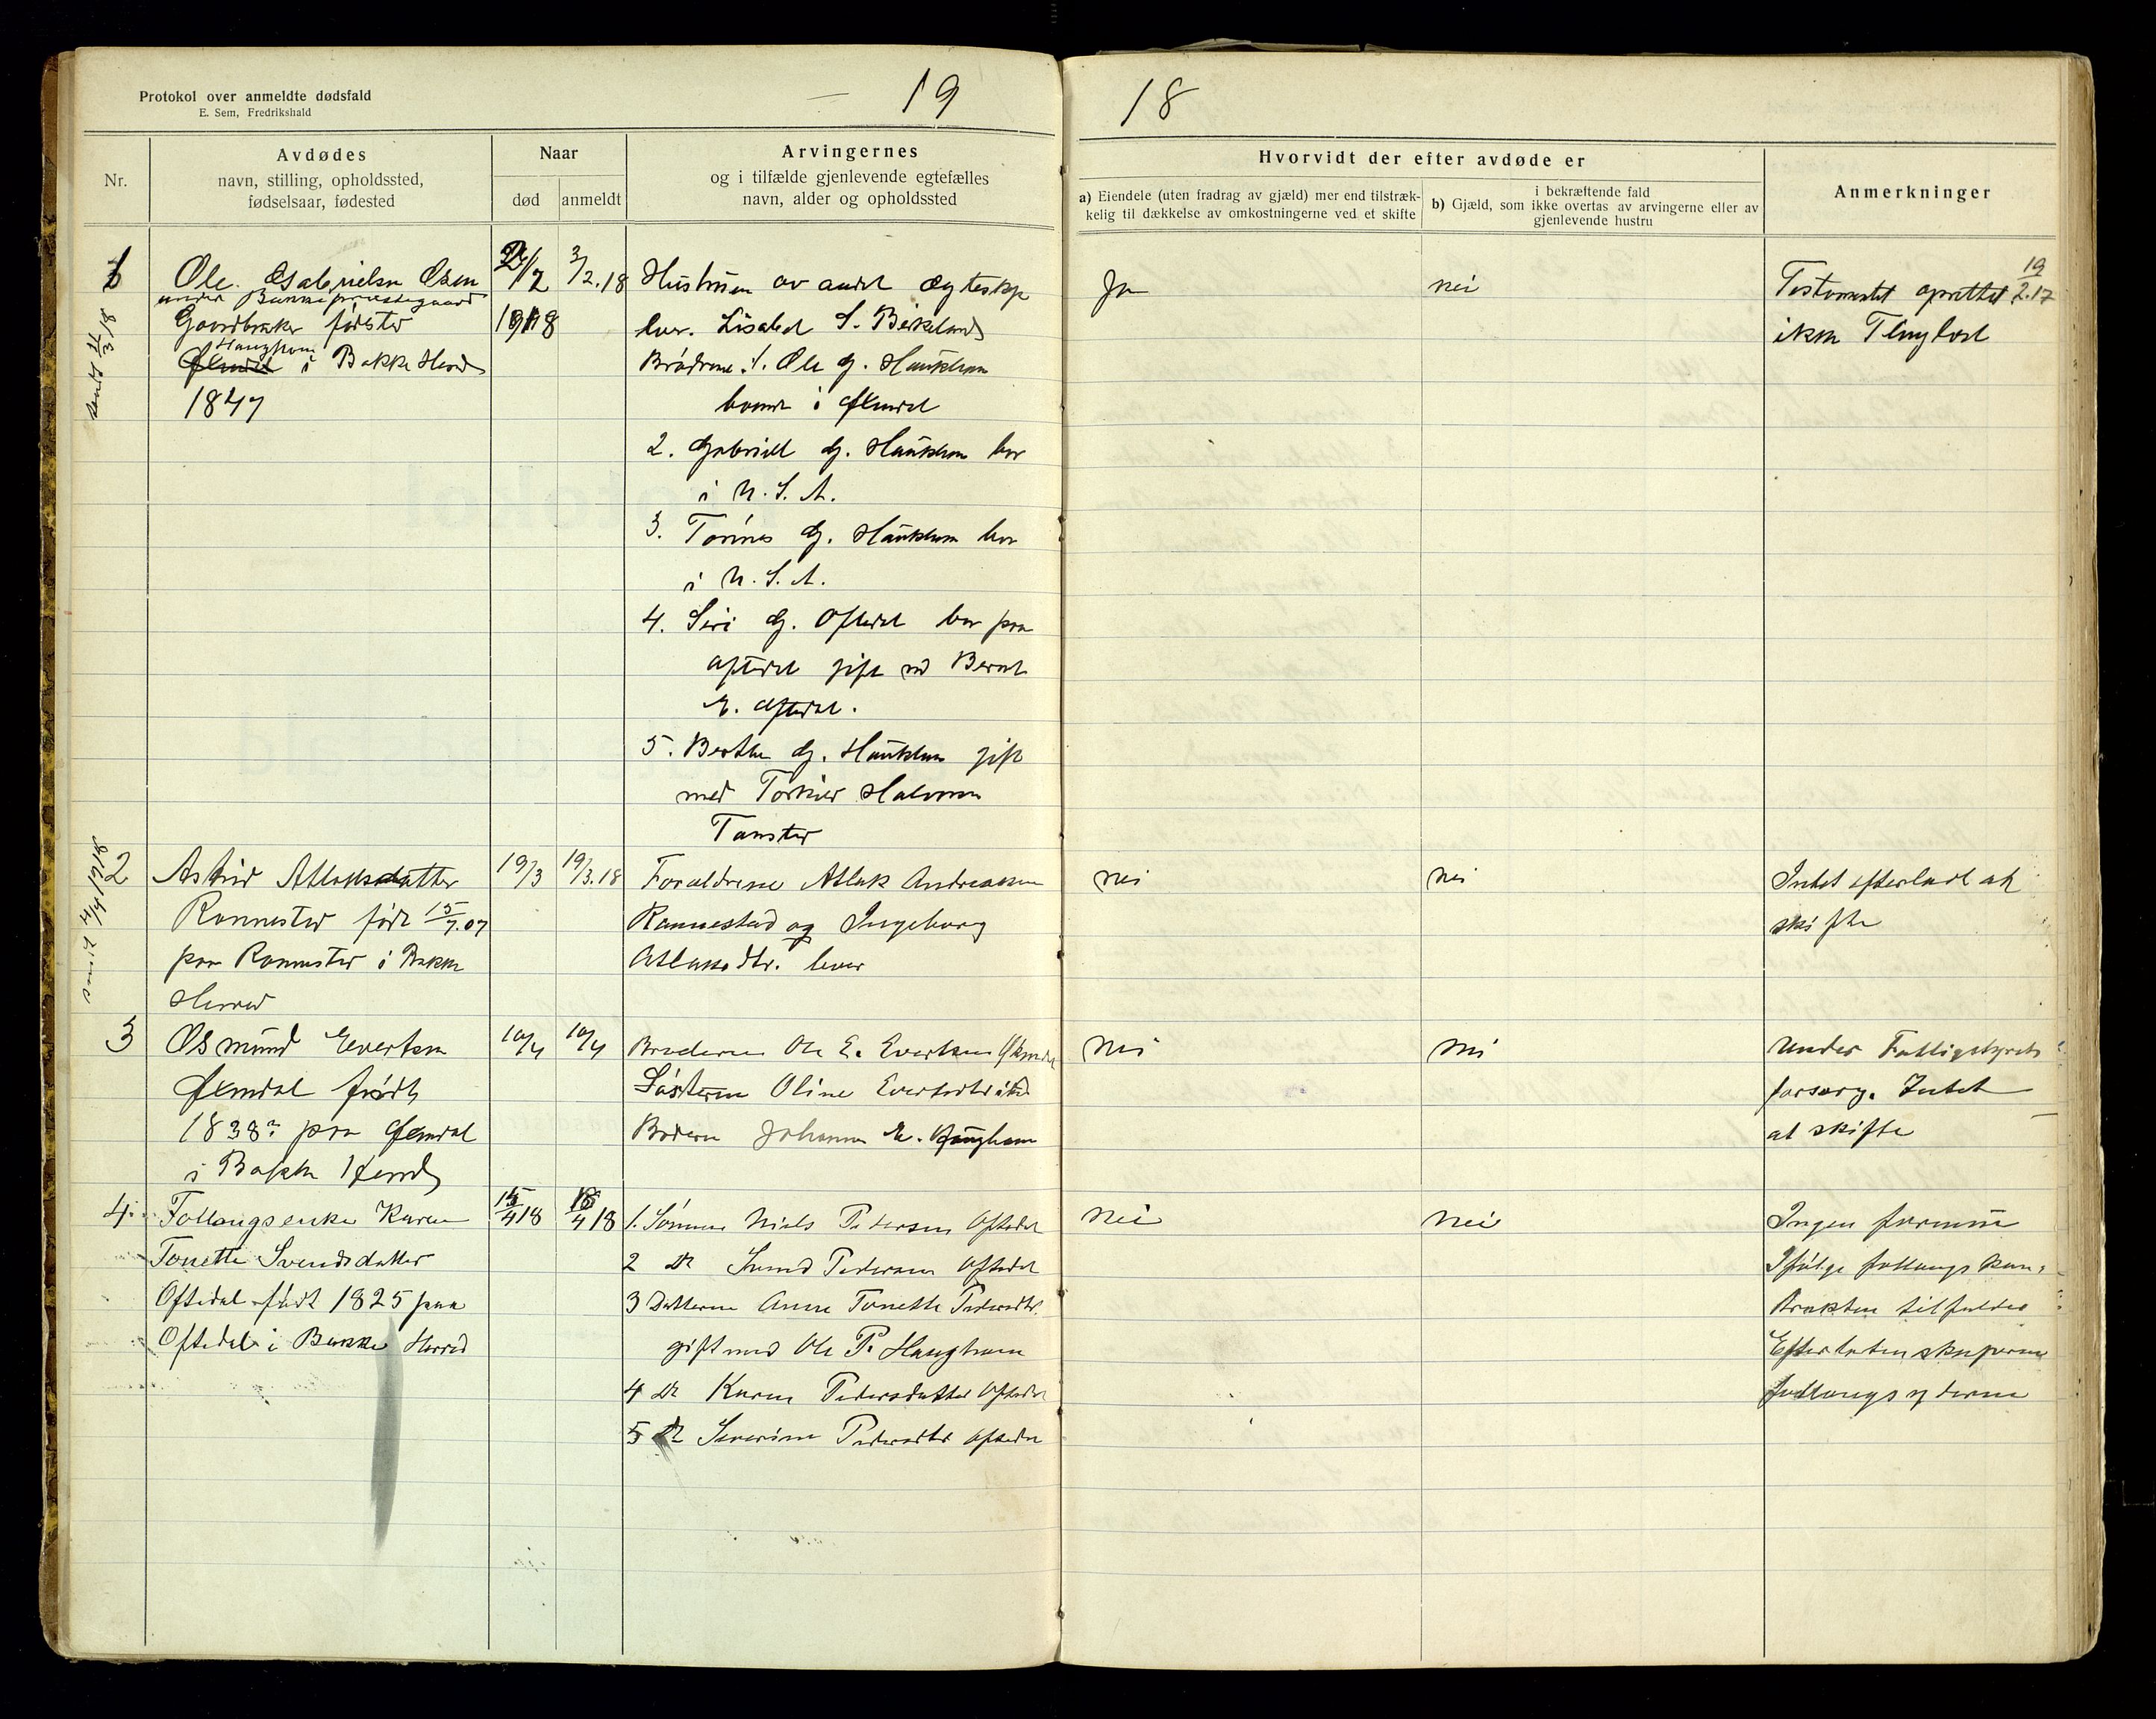 Protokol over anmeldte dødsfald
E. Sem, Fredrikshald
19
18
Nr.
Avdødes
navn, stilling, opholdssted,
fødselsaar, fødested
Naar
død
anmeldt
Arvingernes
og i tilfælde gjenlevende egtefælles
navn, alder og opholdssted
Hvorvidt der efter avdøde er
a) Eiendele (uten fradrag av gjæld) mer end tilstræk-
kelig til dækkelse av omkostningerne ved et skifte
i bekræftende fald
b) Gjæld, som ikke overtas av arvingerne eller av
gjenlevende hustru
Anmerkninger
1
sendt 4/3 18
Ole Gabrielsen Osen
under Bakke præstegaard
Gaardbruker
Haughom
i Bakke Herred
1847
/2
1918
3/2.18
Hustruen av andet Ægteskp
lever. Lisabet S. Birkeland
Brødrene 1. Ole G. Haukhom
i
2. Gabriel G. Haukhom bor
i U.S.A.
3. Tønnes G. Haukhom bor
i U.S.A.
4. Siri G. Oftedal bor paa
Oftedal gift m Bernt
E. Oftedal.
5. Berthe G. Haukhom gift
med Torkild Halvorsen
Ja
nei
Testamentet oprettet 19/2.17
ikke Tinglæst
2
sendt 4/4 1918
Astrid Atlaksdatter
Rannestad født 15/7.07
paa Rannestad i Bakke
Herred
19/3
19/3.18
Forældrene Atlak Andreassen
Rannestad og Ingeborg
Atlaksdtr. lever
nei
nei
Intet efterladt at
skifte
3
Osmund Evertsen
født
1838? paa
i Bakke Herred
10/4
10/4
Broderen Ole E. Evertsen
Søsteren Oline Evertsdtr
Broderen Johannes E. Haughom
nei
nei
Under Fattigstyrets
forsørg. Intet
at skifte
4.
Føllaugsenke Karen
Tonette Svendsdatter
Oftedal født 1825 paa
Oftedal i Bakke Herred
15/4 18
18/4 18
1. Sønnen Niels Pedersen Oftedal
2 Do Svend Pedersen Oftedal
3 Datteren Anne Tonette Pedersdtr.
gift med Ole P. Haughom
4 Do Karen Pedersdatter Oftedal
5 Do Severine Pedersdtr Oftedal
Nei
Nei
Ingen formue
Ifølge føllaugs kon-
trakten tilfalder
Efterlatenskaperne
føllaugsyderne